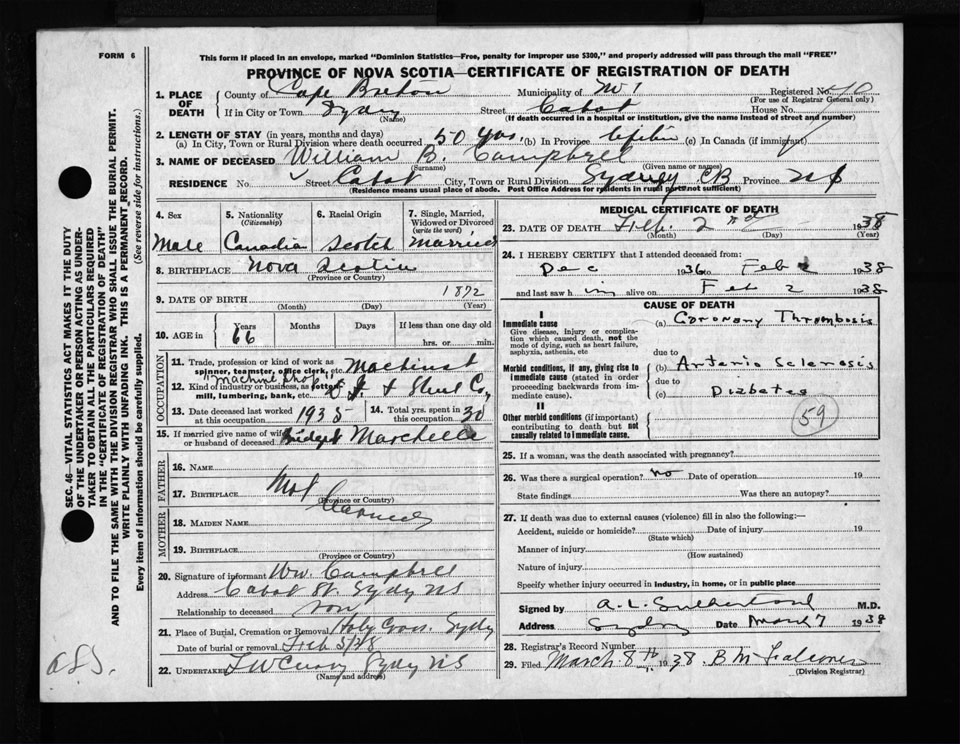 FORM 6
This form if placed in an envelope, marked "Dominion Statistics—Free, penalty for improper use $300," and properly addressed will pass through the mail "FREE"
PROVINCE OF NOVA SCOTIA—CERTIFICATE OF REGISTRATION OF DEATH
1. PLACE OF DEATH
County of Cape Breton Municipality of No 1 Registered No. 70
(For use of Registrar General only)
If in City or Town Sydney Street Cabot House No.
(Name) (If death occurred in a hospital or institution, give the name instead of street and number)
2. LENGTH OF STAY (in years, months and days)
(a) In City, Town or Rural Division where death occurred 50 yrs. (b) In Province (c) In Canada (if immigrant)
3. NAME OF DECEASED William B. Campbell
(Surname) (Given name or names)
RESIDENCE No. Street Cabot City, Town or Rural Division Sydney CB Province NS
(Residence means usual place of abode. Post Office Address for residents in rural parts not sufficient)
4. Sex
Male
5. Nationality
(Citizenship)
Canadian
6. Racial Origin
Scotch
7. Single, Married, Widowed or Divorced
(write the word)
Married
8. BIRTHPLACE Nova Scotia
(Province or Country)
9. DATE OF BIRTH 1872
(Month) (Day) (Year)
10. AGE in Years Months Days If less than one day old
66 hrs. or min.
OCCUPATION
11. Trade, profession or kind of work as spinner, teamster, office clerk, etc. Machinist
Machine Shop
12. Kind of industry or business, as cotton mill, lumbering, bank, etc. D I & Steel Co,
13. Date deceased last worked at this occupation 1935
14. Total yrs. spent in this occupation 30
15. If married give name of wife or husband of deceased Bridget Marchella
FATHER
16. NAME
17. BIRTHPLACE Not
(Province or Country)
MOTHER
18. MAIDEN NAME
19. BIRTHPLACE
(Province or Country)
20. Signature of informant Wm Campbell
Address Cabot St. Sydy NS
Relationship to deceased Son
21. Place of Burial, Cremation or Removal Holy Cross. Sydy
Date of burial or removal Feb 5/38
22. UNDERTAKER Sydy NS
(Name and address)
MEDICAL CERTIFICATE OF DEATH
23. DATE OF DEATH Feb. 2nd 1938
(Month) (Day) (Year)
24. I HEREBY CERTIFY that I attended deceased from:
Dec 1936 to Feb 2 1938
and last saw him alive on Feb 2 1938
CAUSE OF DEATH
I
Immediate cause
Give disease, injury or complication which caused death, not the mode of dying, such as heart failure, asphyxia, asthenia, etc
(a) Coronary Thrombosis
due to
Morbid conditions, if any, giving rise to immediate cause (stated in order proceeding backwards from immediate cause).
(b) Arterio Sclerosis
due to
(c) Diabetes
II
Other morbid conditions (if important) contributing to death but not causally related to immediate cause.
59
25. If a woman, was the death associated with pregnancy?
26. Was there a surgical operation? No Date of operation 19
State findings Was there an autopsy?
27. If death was due to external causes (violence) fill in also the following:—
Accident, suicide or homicide? Date of injury 19
(State which)
Manner of injury
(How sustained)
Nature of injury
Specify whether injury occurred in industry, in home, or in public place
Signed by A. L. Sutherland M.D.
Address Sydney Date March 7 1938
28. Registrar's Record Number
29. Filed March 8th 1938 B M Falconer
(Division Registrar)
SEC. 46—VITAL STATISTICS ACT MAKES IT THE DUTY
OF THE UNDERTAKER OR PERSON ACTING AS UNDER-
TAKER TO OBTAIN ALL THE PARTICULARS REQUIRED
IN THE "CERTIFICATE OF REGISTRATION OF DEATH"
AND TO FILE THE SAME WITH THE DIVISION REGISTRAR WHO SHALL ISSUE THE BURIAL PERMIT.
WRITE PLAINLY WITH UNFADING INK. THIS IS A PERMANENT RECORD.
Every item of information should be carefully supplied. (See reverse side for instructions.)